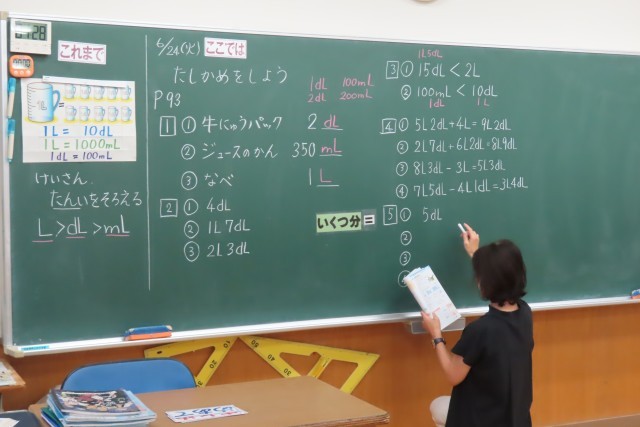 これまで
1L = 10dL
1L = 1000mL
1dL = 100mL
けいさん
たんいをそろえる
L>dL>mL
6/24(火) ここでは
たしかめをしよう
P93
1dL 100mL
2dL 200mL
1 ① 牛にゅうパック 2 dL
② ジュースのかん 350 mL
③ なべ 1 L
2 ① 4dL
② 1L7dL
③ 2L3dL
いくつ分=
1L5dL
3 ① 15dL < 2L
② 100mL < 10dL
1dL 1L
4 ① 5L2dL+4L=9L2dL
② 2L7dL+6L2dL=8L9dL
③ 8L3dL-3L=5L3dL
④ 7L5dL-4L1dL=3L4dL
5 ① 5dL
②
③